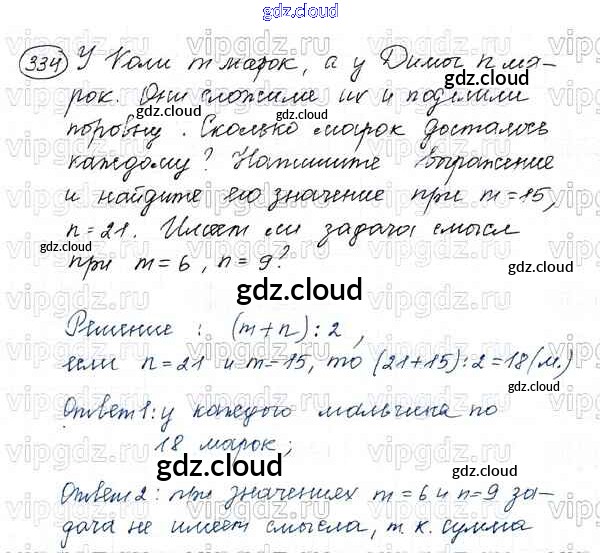 gdz.cloud
334 У Коли m марок, а у Димы n ма-
рок. Они сложили их и поделили
поровну. Сколько марок досталось
каждому? Напишите выражение
и найдите его значение при m=15,
n=21. Имеет ли задача смысл
при m=6, n=9?
gdz.cloud
Решение : (m+n):2,
если n=21 и m=15, то (21+15):2=18(м.)
Ответ 1: у каждого мальчика по
18 марок;
gdz.cloud
Ответ 2: при значениях m=6 и n=9 за-
дача не имеет смысла, т.к. сумма